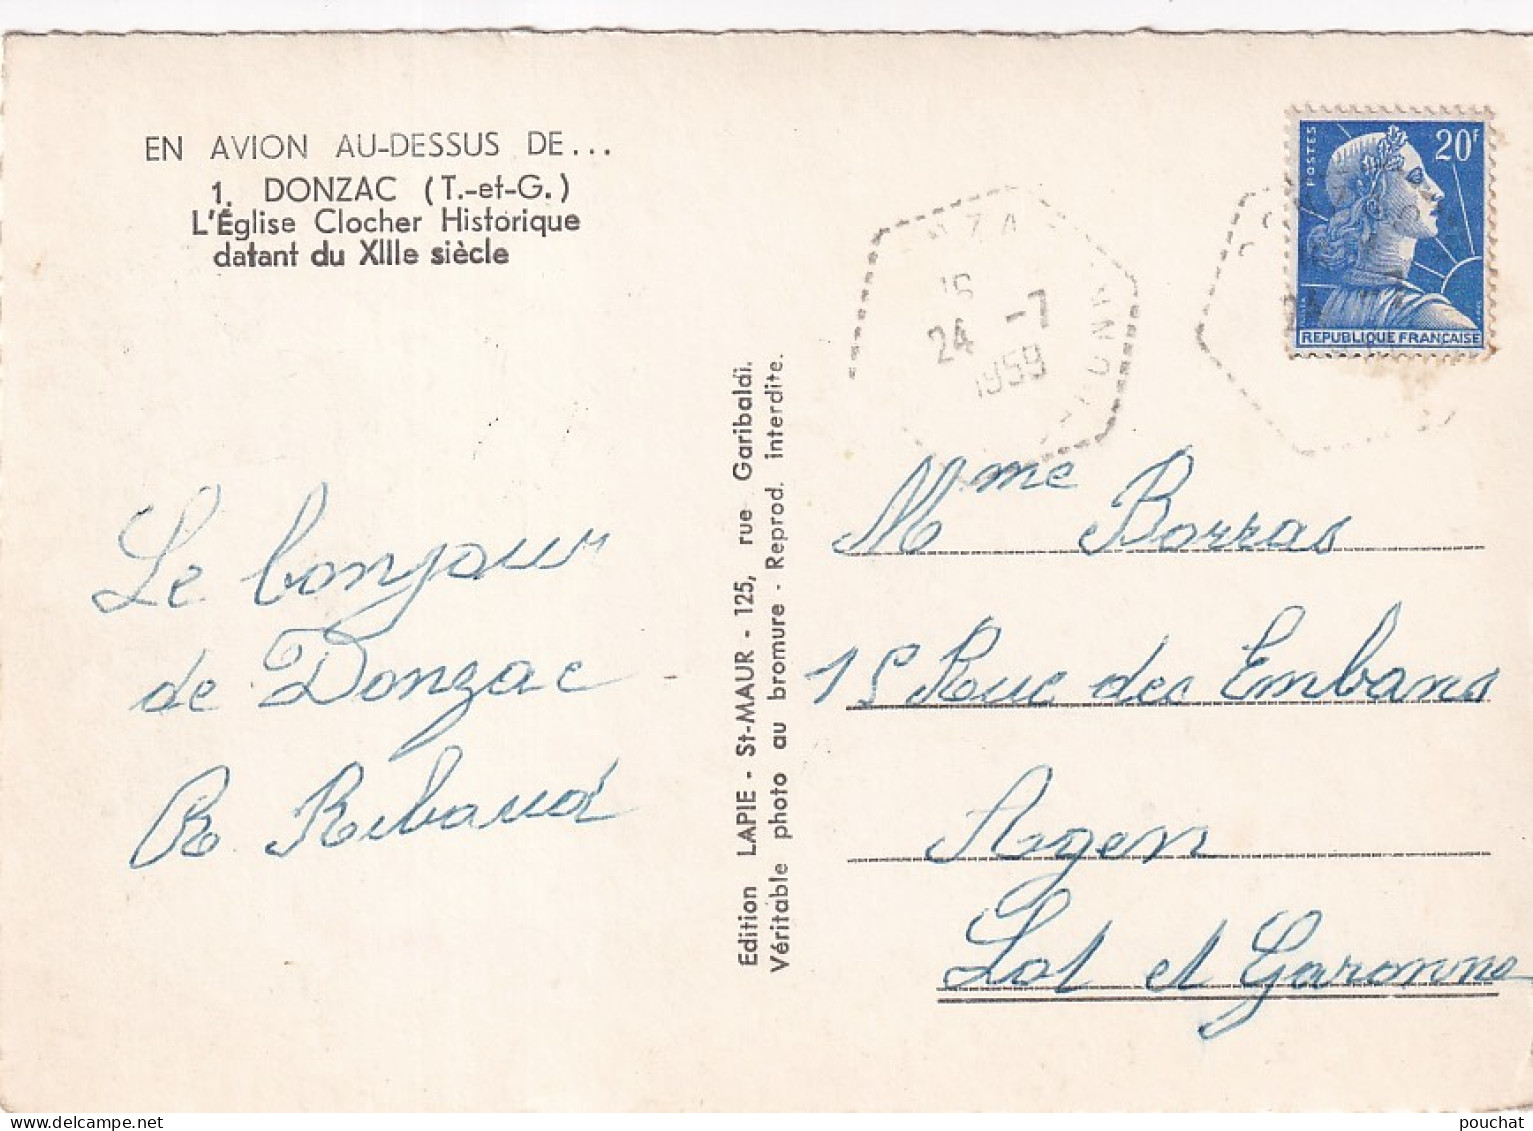 EN AVION AU-DESSUS DE...
1. DONZAC (T.-et-G.)
L'Église Clocher Historique
datant du XIIIe siècle
Le bonjour
de Donzac
R Ribaud
Edition LAPIE - St-MAUR - 125, rue Garibaldi.
Véritable photo au bromure - Reprod. interdite.
POSTES
20F
REPUBLIQUE FRANÇAISE
24 -7
1959
Mme Borras
Rue des Embans
Agen
Lot et Garonne
pouchat